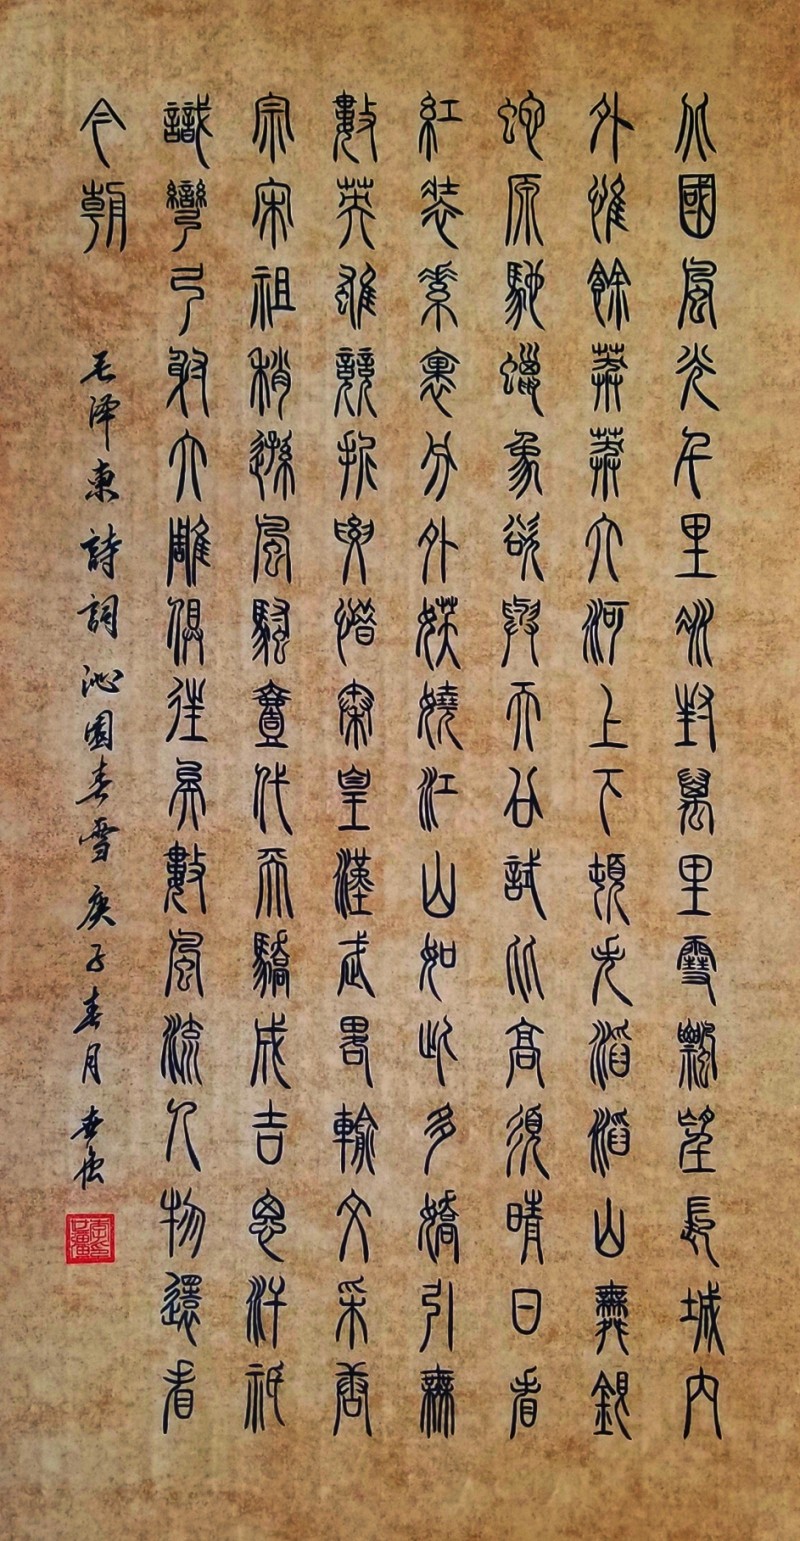 北國風光千里冰封萬里雪飄望長城內
外惟餘莽莽大河上下頓失滔滔山舞銀
蛇原馳蠟象欲與天公試比高須晴日看
紅裝素裹分外妖嬈江山如此多嬌引無
數英雄競折腰惜秦皇漢武畧輸文采唐
宗宋祖稍遜風騷壹代天驕成吉思汗祇
識彎弓射大雕俱往矣數風流人物還看
今朝
毛泽東詩詞沁園春雪庚子春月